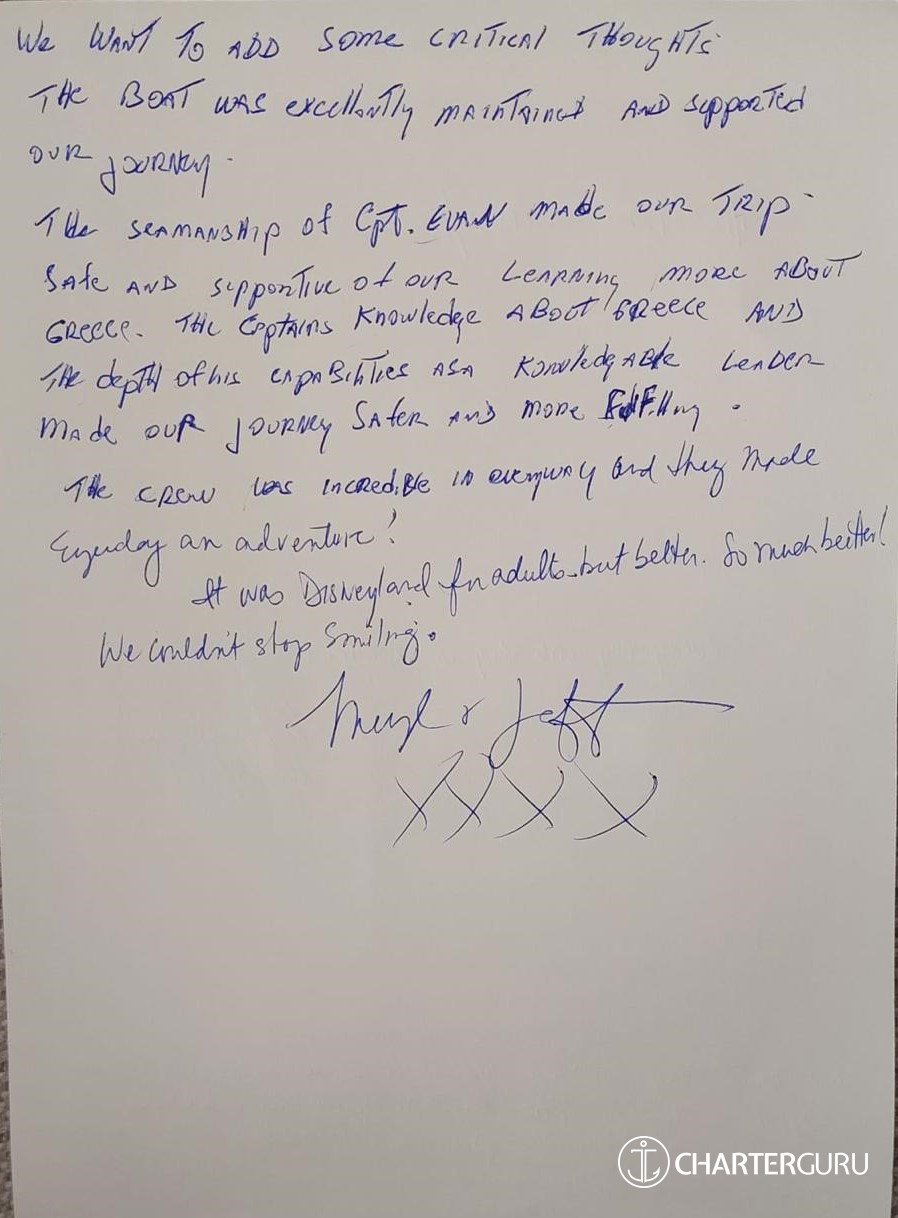 WE WANT TO ADD SOME CRITICAL THOUGHTS
THE BOAT WAS excellently MAINTAINED AND supported
OUR JOURNEY.
THE SEAMANSHIP of Cpt. EVAN MADE OUR TRIP
SAFE AND supportive of OUR LEARNING MORE ABOUT
GREECE. THE CAPTAINS Knowledge ABOUT GREECE AND
THE depth of his CAPABILITIES AS A KNOWLEDGABLE LEADER
MADE OUR JOURNEY SAFER AND MORE FulFilling.
THE CREW WAS INCREDIBLE IN everyway and they made
Everyday an adventure!
It was DISNEYland for adults - but better. So much better!
We couldn't stop smiling.
& Jeff
XXXX
CHARTERGURU